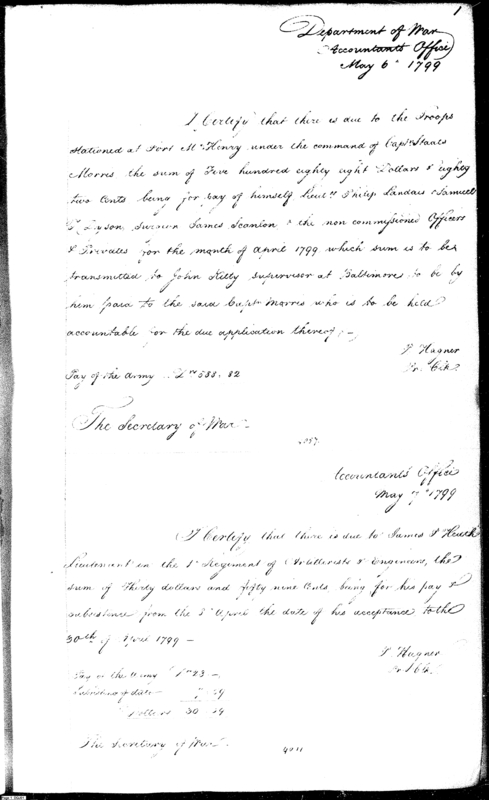 1
Department of War
Accountants Office
May 6th 1799
I Certify that there is due to the Troops
stationed at Fort McHenry under the command of Captn Staats
Morris the sum of Five hundred eighty eight Dollars & eighty
two Cents being for pay of himself Lieuts Philip Landais & Samuel
T. Dyson, Surgeon James Scanlon & the non commissioned Officers
& Privates for the month of April 1799 which sum is to be
transmitted to John Kelty supervisor at Baltimore to be by
him paid to the said Captn Morris who is to be held
accountable for the due application thereof —
P Hagner
Pr. Clk
Pay of the Army Drs 588. 82
The Secretary of War
Accountants Office
May 7th 1799
I Certify that there is due to James P Heath
Lieutenant in the 1st Regiment of Artillerists & Engineers, the
sum of Thirty dollars and fifty nine Cents being for his pay &
subsistence from the April the date of his acceptance to the
30th of April 1799 —
P Hagner
Pr. Clk
Pay of the Army Drs 23 —
Subsistence of ditto 7 59
Dollars 30 59
The Secretary of War